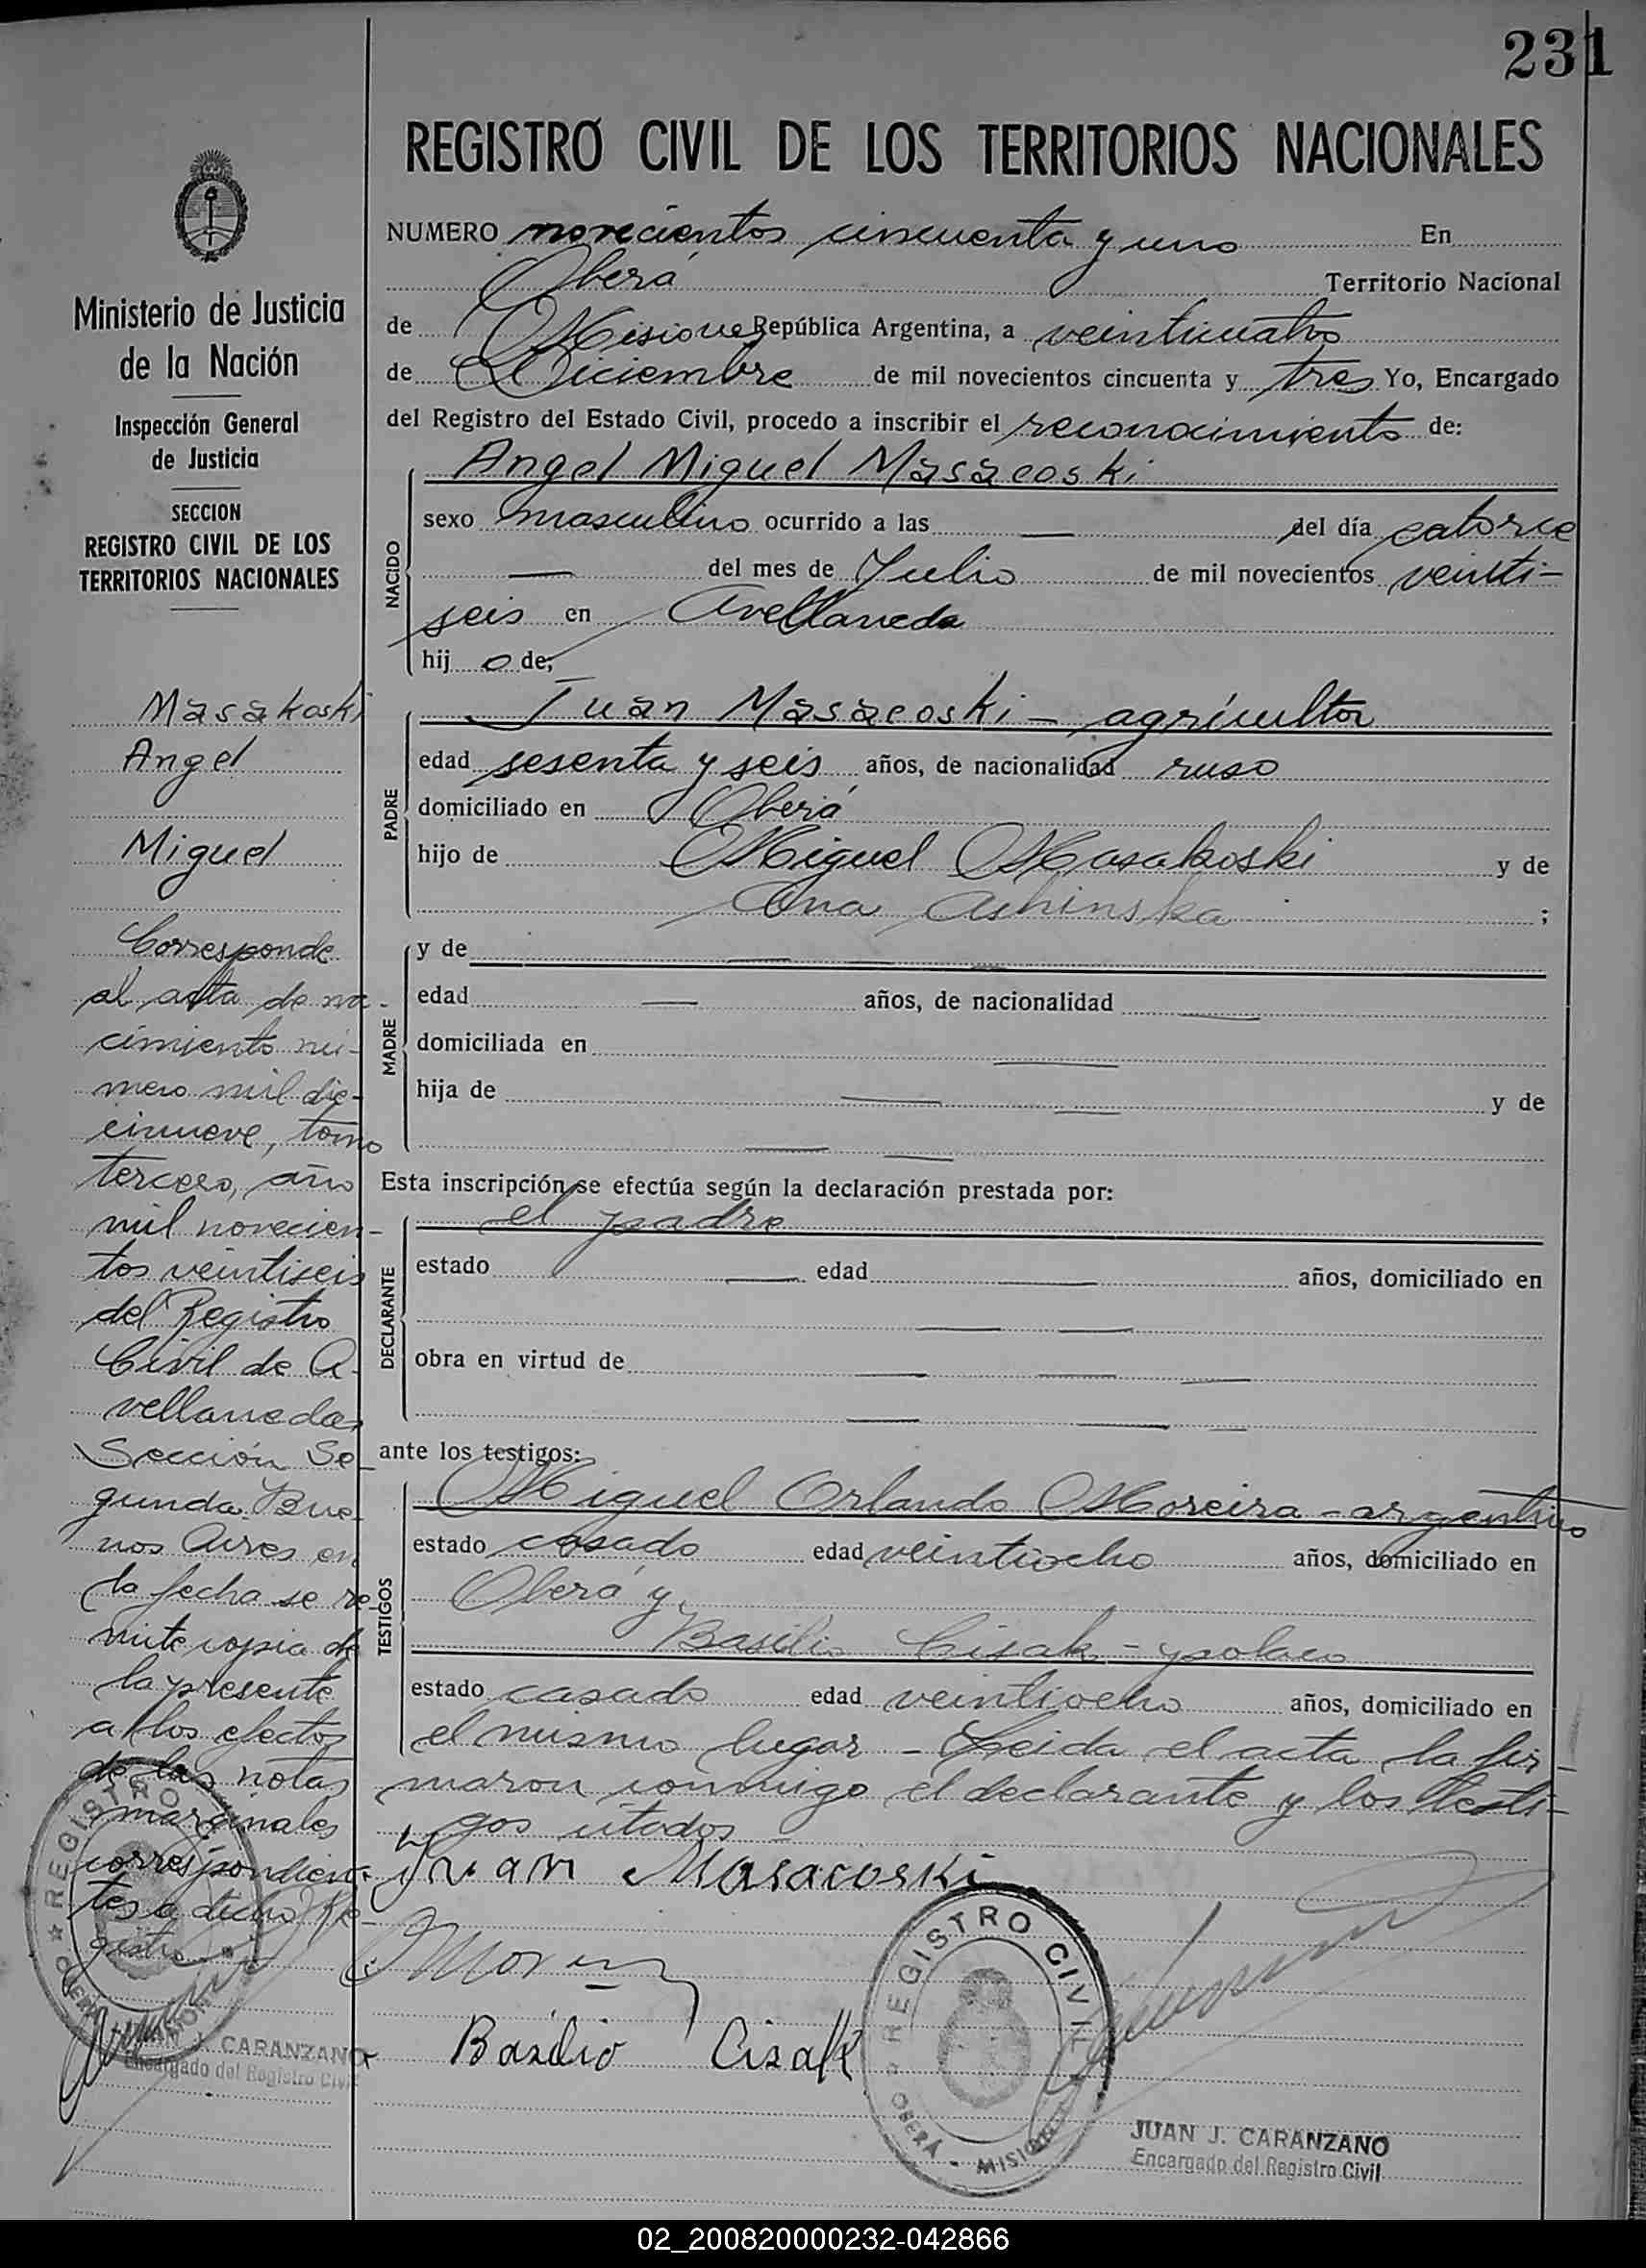 231
REGISTRO CIVIL DE LOS TERRITORIOS NACIONALES
Ministerio de Justicia
de la Nación
Inspección General
de Justicia
SECCION
REGISTRO CIVIL DE LOS
TERRITORIOS NACIONALES
Masakoski
Angel
Miguel
Corresponde
al acta de na-
cimiento nú-
mero mil die-
cinueve, tomo
tercero, año
mil novecien-
tos veintiseis
del Registro
Civil de A-
vellaneda,
Sección Se-
gunda Bue-
nos Aires en
la fecha se re-
mite copia de
la presente
a los efectos
de las notas
marginales
correspondien-
tes a dicho Re-
gistro
REGISTRO
J. CARANZANO
Encargado del Registro Civil
NUMERO novecientos cincuenta y uno En
Oberá Territorio Nacional
de Misiones República Argentina, a veinticuatro
de Diciembre de mil novecientos cincuenta y tres Yo, Encargado
del Registro del Estado Civil, procedo a inscribir el reconocimiento de:
NACIDO
Angel Miguel Masacoski
sexo masculino ocurrido a las — del día catorce
— del mes de Julio de mil novecientos veinti-
seis en Avellaneda
hijo de;
PADRE
Juan Masacoski - agricultor
edad sesenta y seis años, de nacionalidad ruso
domiciliado en Oberá
hijo de Miguel Masakoski y de
Ana Ashinska ;
MADRE
y de — — —
edad — años, de nacionalidad —
domiciliada en —
hija de — — y de
— —
Esta inscripción se efectúa según la declaración prestada por:
DECLARANTE
el padre
estado — edad — años, domiciliado en
— —
obra en virtud de — — —
— — —
ante los testigos:
TESTIGOS
Miguel Orlando Moreira - argentino
estado casado edad veintiocho años, domiciliado en
Oberá y
Basilio Cisak - polaco
estado casado edad veintiocho años, domiciliado en
el mismo lugar - Leida el acta la fir-
maron conmigo el declarante y los testi-
gos citados -
Juan Masacoski
Basilio Cisak
REGISTRO CIVIL
OBERÁ - MISIONES
JUAN J. CARANZANO
Encargado del Registro Civil
02_200820000232-042866